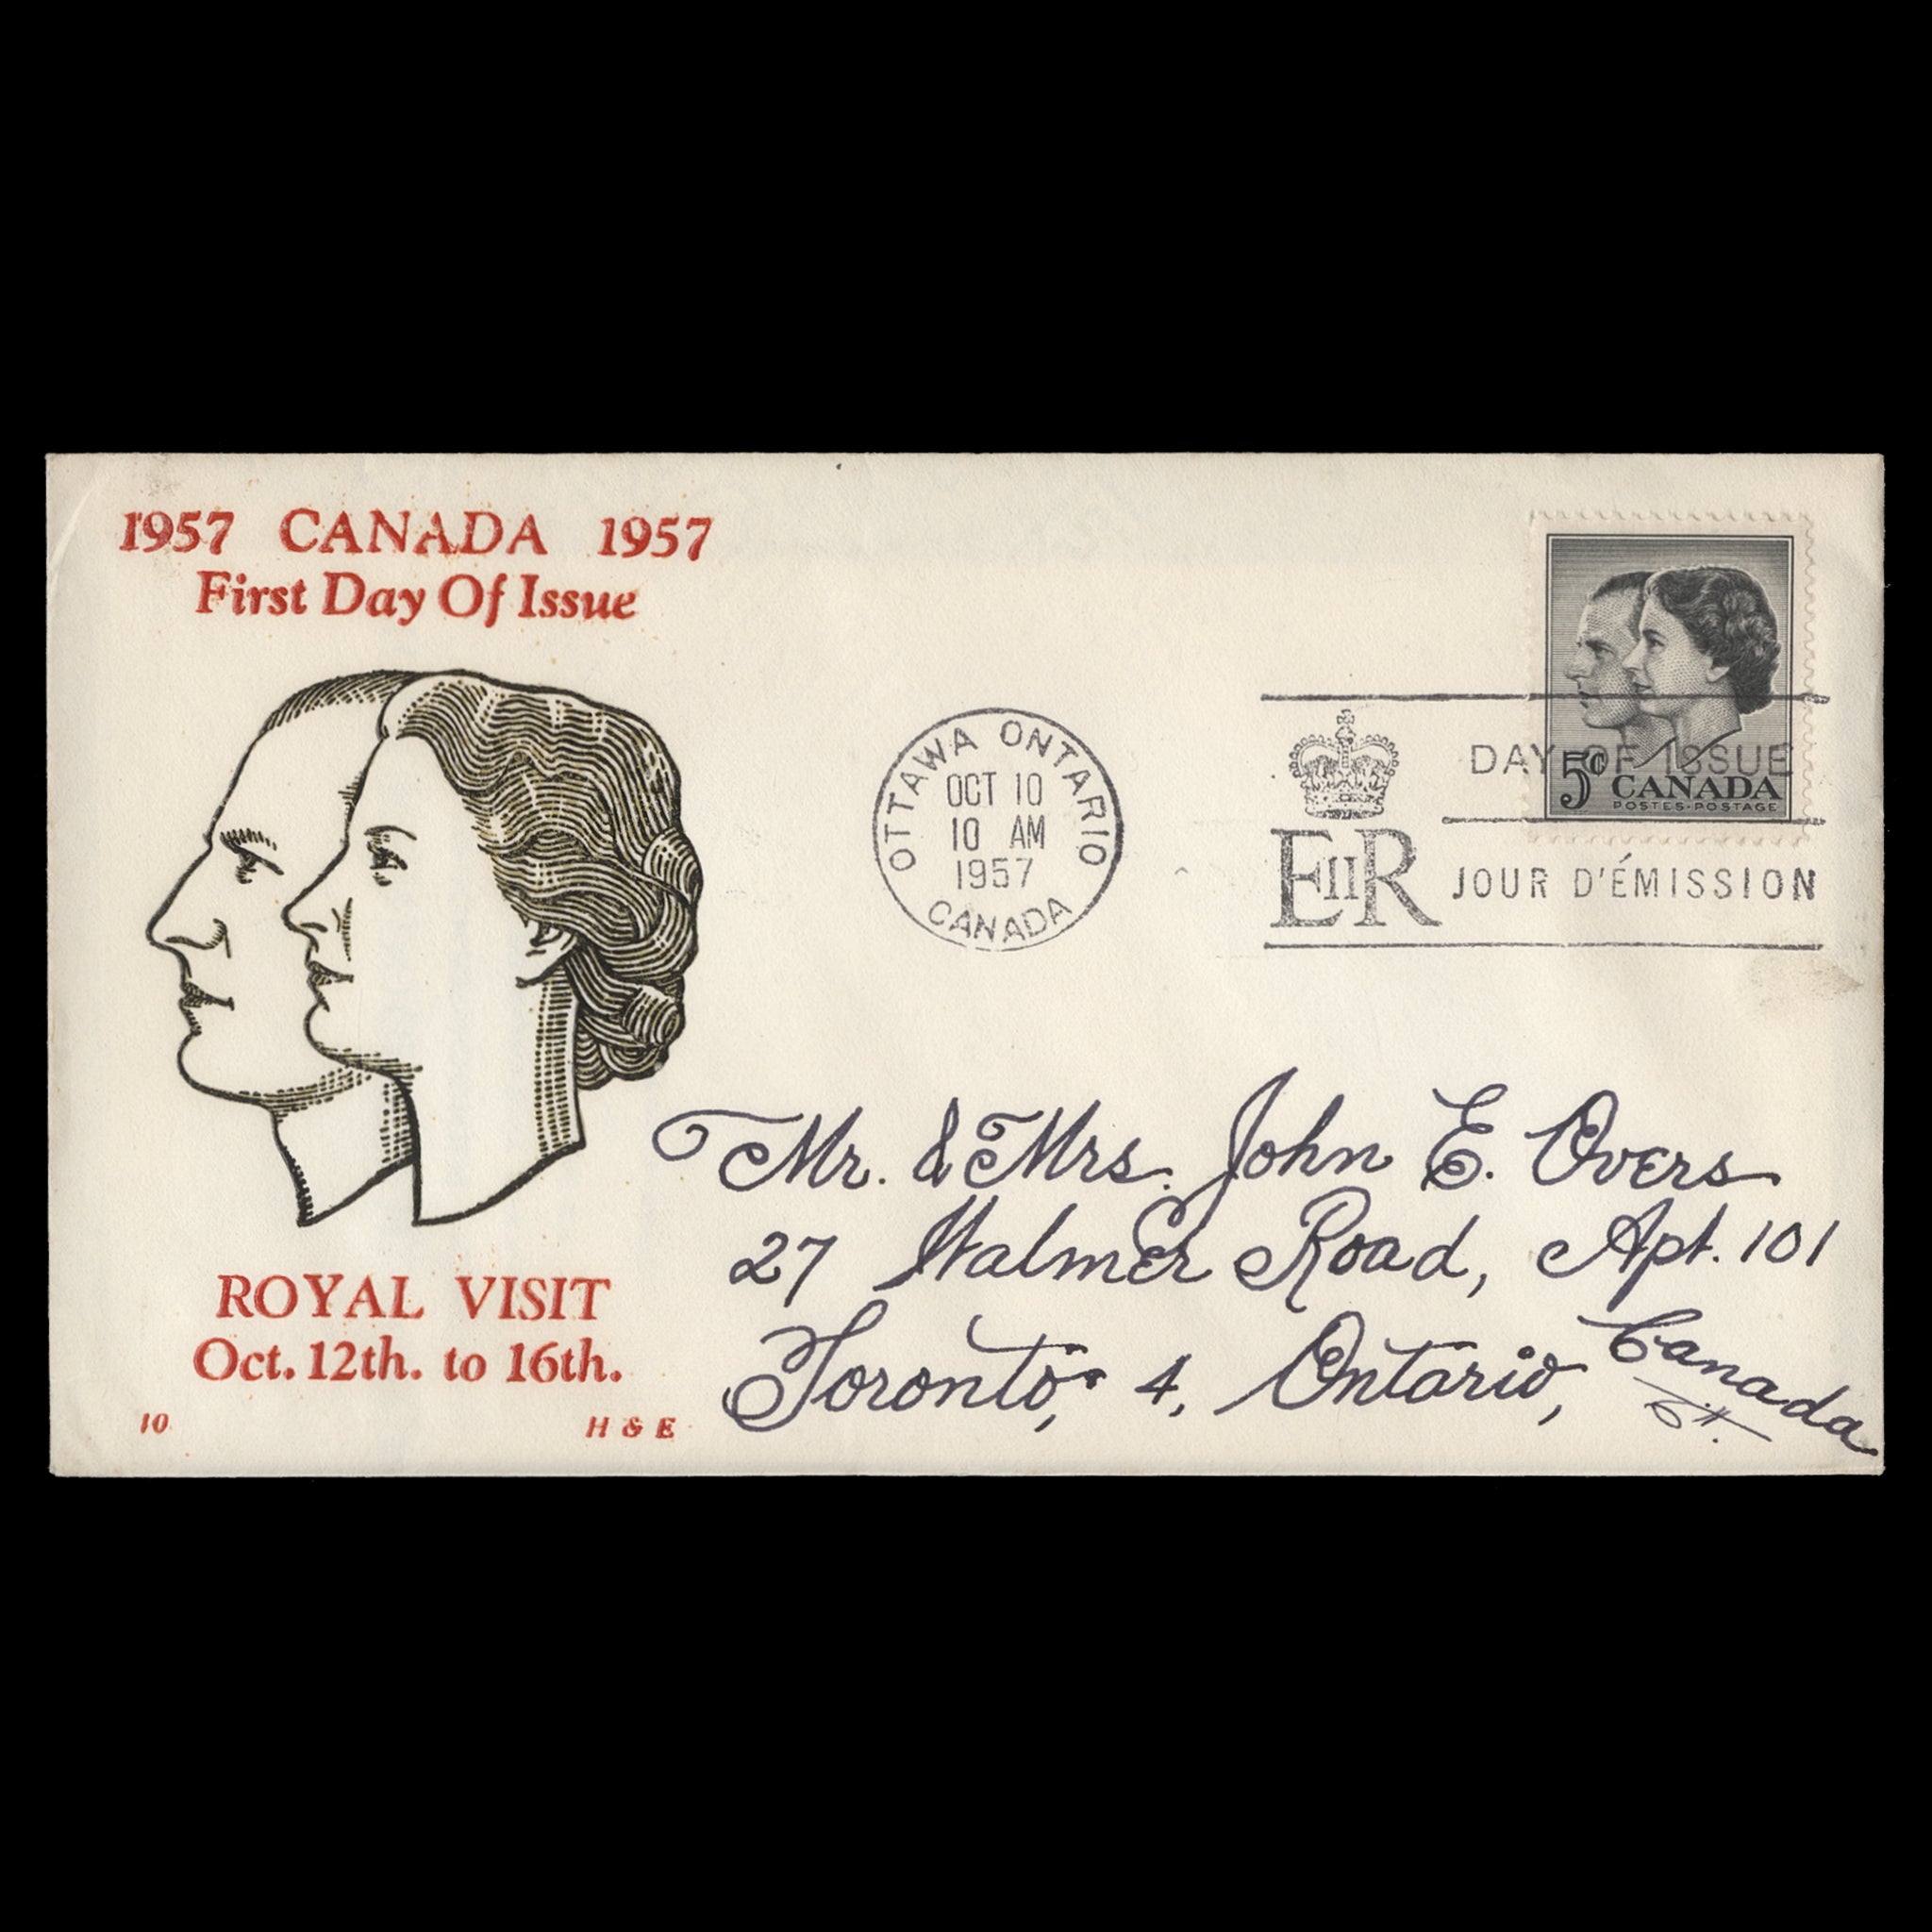 1957 CANADA 1957
First Day Of Issue
ROYAL VISIT
Oct. 12th. to 16th.
10
H & E
OTTAWA ONTARIO
OCT 10
10 AM
1957
CANADA
DAY OF ISSUE
EIIR JOUR D'ÉMISSION
5¢ CANADA
POSTES-POSTAGE
Mr. & Mrs. John E. Overs
27 Walmer Road, Apt. 101
Toronto, 4, Ontario, Canada